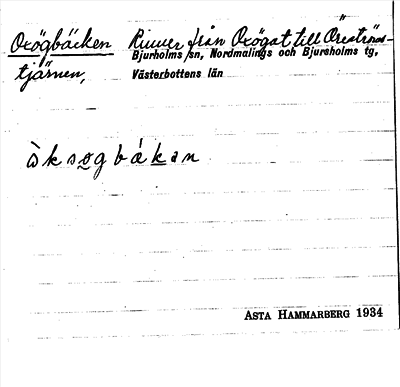 Oxögbäcken Rinner från Oxögat till Öreströms-
Bjurholms sn, Nordmalings och Bjurholms tg,
tjärnen, Västerbottens län
òksøgbákan
ASTA HAMMARBERG 1934